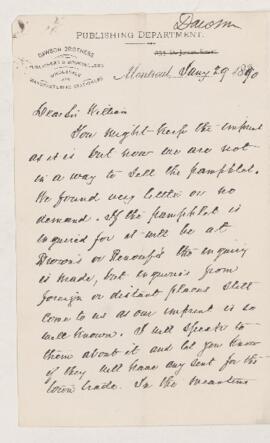 Dawson
PUBLISHING DEPARTMENT.
DAWSON BROTHERS
PUBLISHERS
WHOLESALE
AND
MANUFACTURING STATIONERS
Montreal, Jany 29 1890
Dear Sir William
You might keep the imprint
as it is but now we are not
in a way to sell the pamphlet.
We found very little or no
demand. If the pamphlet is
inquired for it will be at
Drysdale's or Renouf's the inquiry
is made, but inquiries from
foreign or distant places still
come to us as our imprint is so
well known. I will speak to
them about it and let you know
if they will have any sent for the
town trade. In the meantime